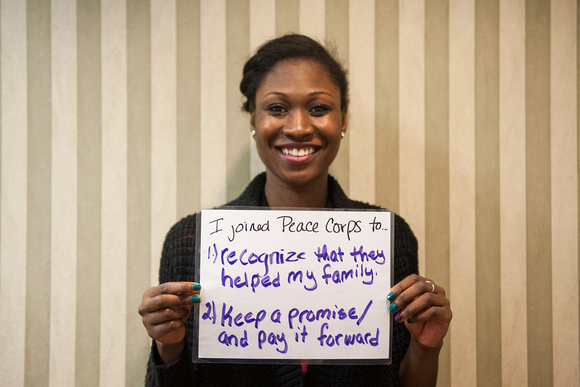 I joined Peace Corps to...
1.) recognize that they
helped my family.
2.) Keep a promise/
and pay it forward